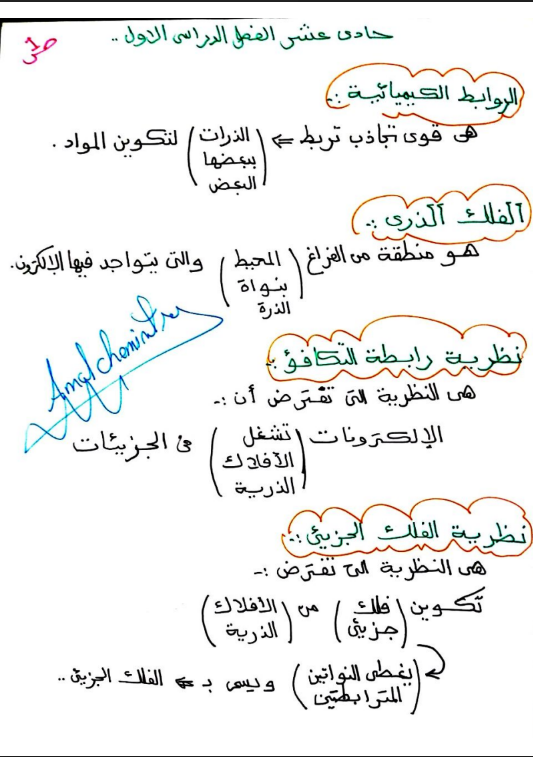 حادى عشر الفصل الدراسى الاول ..
ص1
الروابط الكيميائية :-
هى قوى تجاذب تربط ⇐ (الذرات ببعضها البعض) لتكوين المواد .
الفلك الذرى :-
هو منطقة من الفراغ (المحيط بنواة الذرة) والتى يتواجد فيها الإلكترون.
Amal chemistry
نظرية رابطة التكافؤ :-
هى النظرية التى تفترض أن :-
الإلكترونات (تشغل الأفلاك الذرية) فى الجزيئات
نظرية الفلك الجزيئى :-
هى النظرية التى تفترض :-
تكوين (فلك جزيئى) من (الأفلاك الذرية)
(يغطى النواتين المترابطتين) ويسمى بـ ⇐ الفلك الجزيئى ..